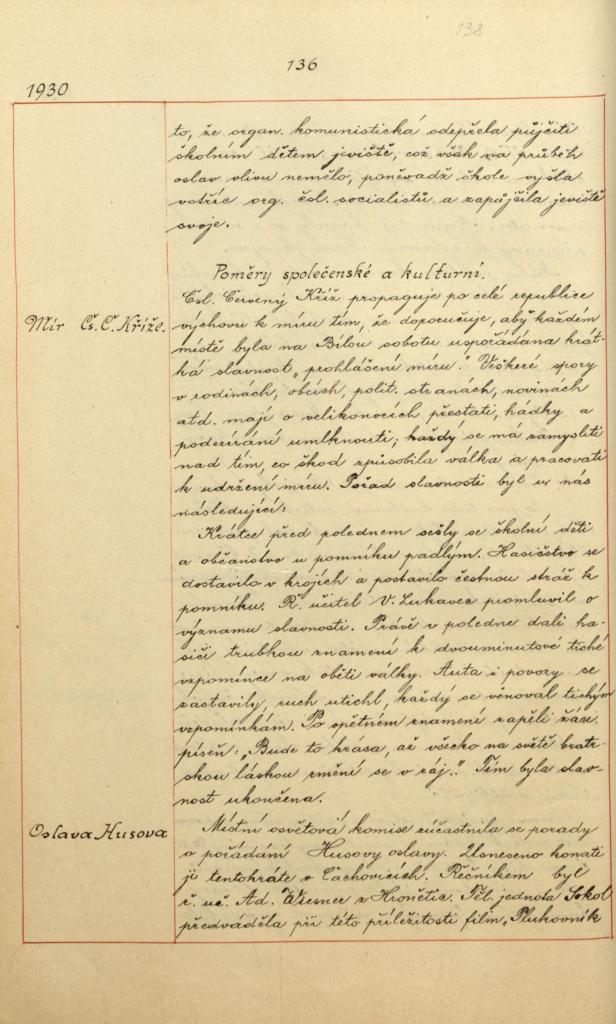 138
136
1930
to, že organ. komunistická odepřela půjčiti
školním dětem jeviště, což však na průběh
oslav vlivu nemělo, poněvadž škole vyšla
vstříc org. čsl. socialistů a zapůjčila jeviště
svoje.
Poměry společenské a kulturní.
Mír Čs. Č. Kříže.
Čsl. Červený Kříž propaguje po celé republice
výchovu k míru tím, že doporučuje, aby v každém
místě byla na Bílou sobotu uspořádána krát-
ká slavnost „prohlášení míru." Veškeré spory
v rodinách, obcích, polit. stranách, novinách
atd. mají o velikonocích přestati, hádky a
podezírání umlknouti; každý se má zamysliti
nad tím, co škod způsobila válka a pracovati
k udržení míru. Pořad slavnosti byl u nás
následující:
Krátce před polednem sešly se školní děti
a občanstvo u pomníku padlým. Hasičstvo se
dostavilo v krojích a postavilo čestnou stráž k
pomníku. Ř. učitel V. Lukavec promluvil o
významu slavnosti. Právě v poledne dali ha-
siči trubkou znamení k dvouminutové tiché
vzpomínce na oběti války. Auta i povozy se
zastavily, ruch utichl, každý se věnoval tichým
vzpomínkám. Po zpětném znamení zapěli žáci
píseň: „Bude to krása, až všecko na světě bratr-
skou láskou změní se v ráj." Tím byla slav-
nost ukončena.
Oslava Husova
Místní osvětová komise zúčastnila se porady
o pořádání Husovy oslavy. Usneseno konati
ji tentokráte v Čachovicích. Řečníkem byl
ř. uč. Ad. Wiesner z Hronětic. Těl. jednota Sokol
předváděla při této příležitosti film „Plukovník